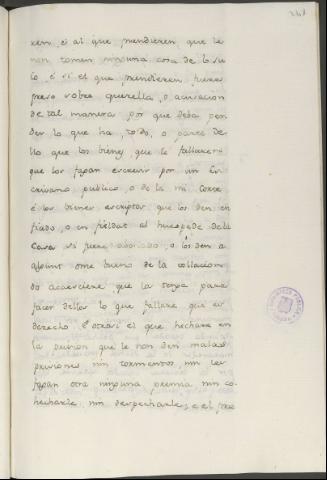 xeren, é al que prendieren, que le
non tomen ninguna cosa de lo su
io, é si el que prendieren fuere
preso sobre querella, o acusacion
de tal manera por que deba per
der lo que ha, todo, o parte de
llo que los bienes que le fallaren
que los fagan escrevir por un Es
crivano publico, o de la mi Corte
é los bienes escriptos que los den en
fiado, o en fieldat al huespede de la
Casa si fuere abonado, o los den a
algunt ome bueno de la collacion
do acaesciere que la tenga para
facer dellos lo que fallare que es
derecho. E otrosi el que hechare en
la prision que le non den malas
prisiones nin tormentos, nin les
fagan otra ninguna premia nin co
hecharle, nin despecharle, e el pre